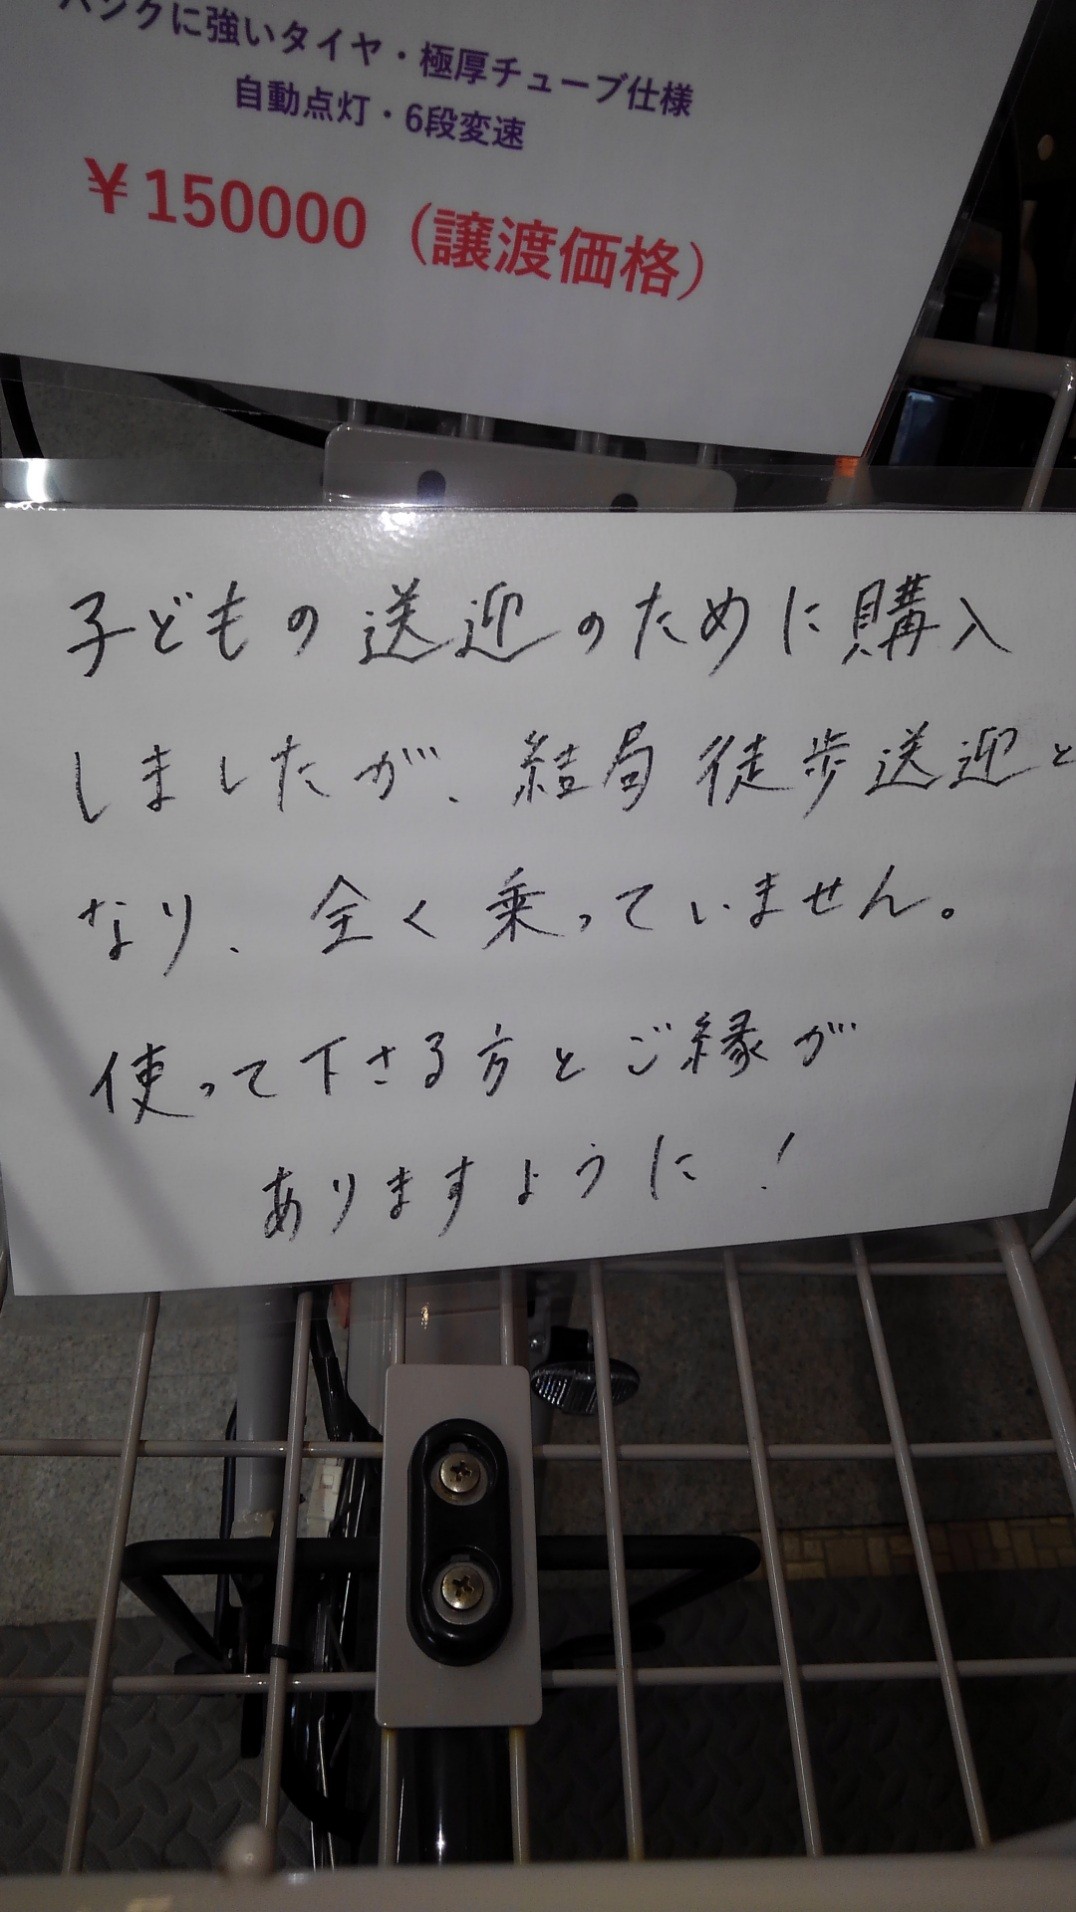 パンクに強いタイヤ・極厚チューブ仕様
自動点灯・6段変速
￥150000（譲渡価格）
子どもの送迎のために購入
しましたが、結局徒歩送迎と
なり、全く乗っていません。
使って下さる方とご縁が
ありますように！